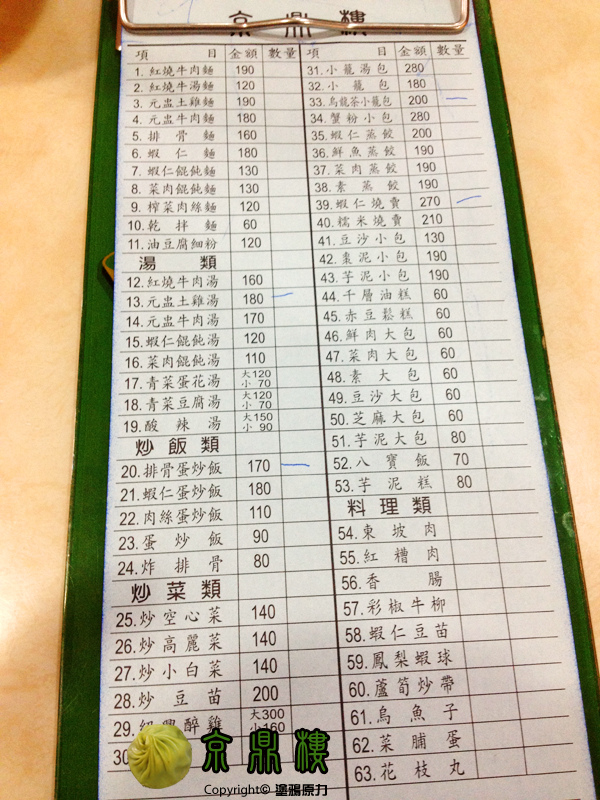 京鼎樓
項 目 金額 數量
1.紅燒牛肉麵 190
2.紅燒牛湯麵 120
3.元盅土雞麵 190
4.元盅牛肉麵 180
5.排骨麵 160
6.蝦仁麵 180
7.蝦仁餛飩麵 130
8.菜肉餛飩麵 130
9.榨菜肉絲麵 120
10.乾拌麵 60
11.油豆腐細粉 120
湯類
12.紅燒牛肉湯 160
13.元盅土雞湯 180
14.元盅牛肉湯 170
15.蝦仁餛飩湯 120
16.菜肉餛飩湯 110
17.青菜蛋花湯 大120 小 70
18.青菜豆腐湯 大120 小 70
19.酸辣湯 大150 小 90
炒飯類
20.排骨蛋炒飯 170
21.蝦仁蛋炒飯 180
22.肉絲蛋炒飯 110
23.蛋炒飯 90
24.炸排骨 80
炒菜類
25.炒空心菜 140
26.炒高麗菜 140
27.炒小白菜 140
28.炒豆苗 200
29.紹興醉雞 大300 小160
30
項 目 金額 數量
31.小籠湯包 280
32.小籠包 180
33.烏龍茶小籠包 200
34.蟹粉小包 280
35.蝦仁蒸餃 200
36.鮮魚蒸餃 190
37.菜肉蒸餃 190
38.素蒸餃 190
39.蝦仁燒賣 270
40.糯米燒賣 210
41.豆沙小包 130
42.棗泥小包 190
43.芋泥小包 190
44.千層油糕 60
45.赤豆鬆糕 60
46.鮮肉大包 60
47.菜肉大包 60
48.素大包 60
49.豆沙大包 60
50.芝麻大包 60
51.芋泥大包 80
52.八寶飯 70
53.芋泥糕 80
料理類
54.東坡肉
55.紅糟肉
56.香腸
57.彩椒牛柳
58.蝦仁豆苗
59.鳳梨蝦球
60.蘆筍炒帶
61.烏魚子
62.菜脯蛋
63.花枝丸
京鼎樓
Copyright© 塗鴉原力